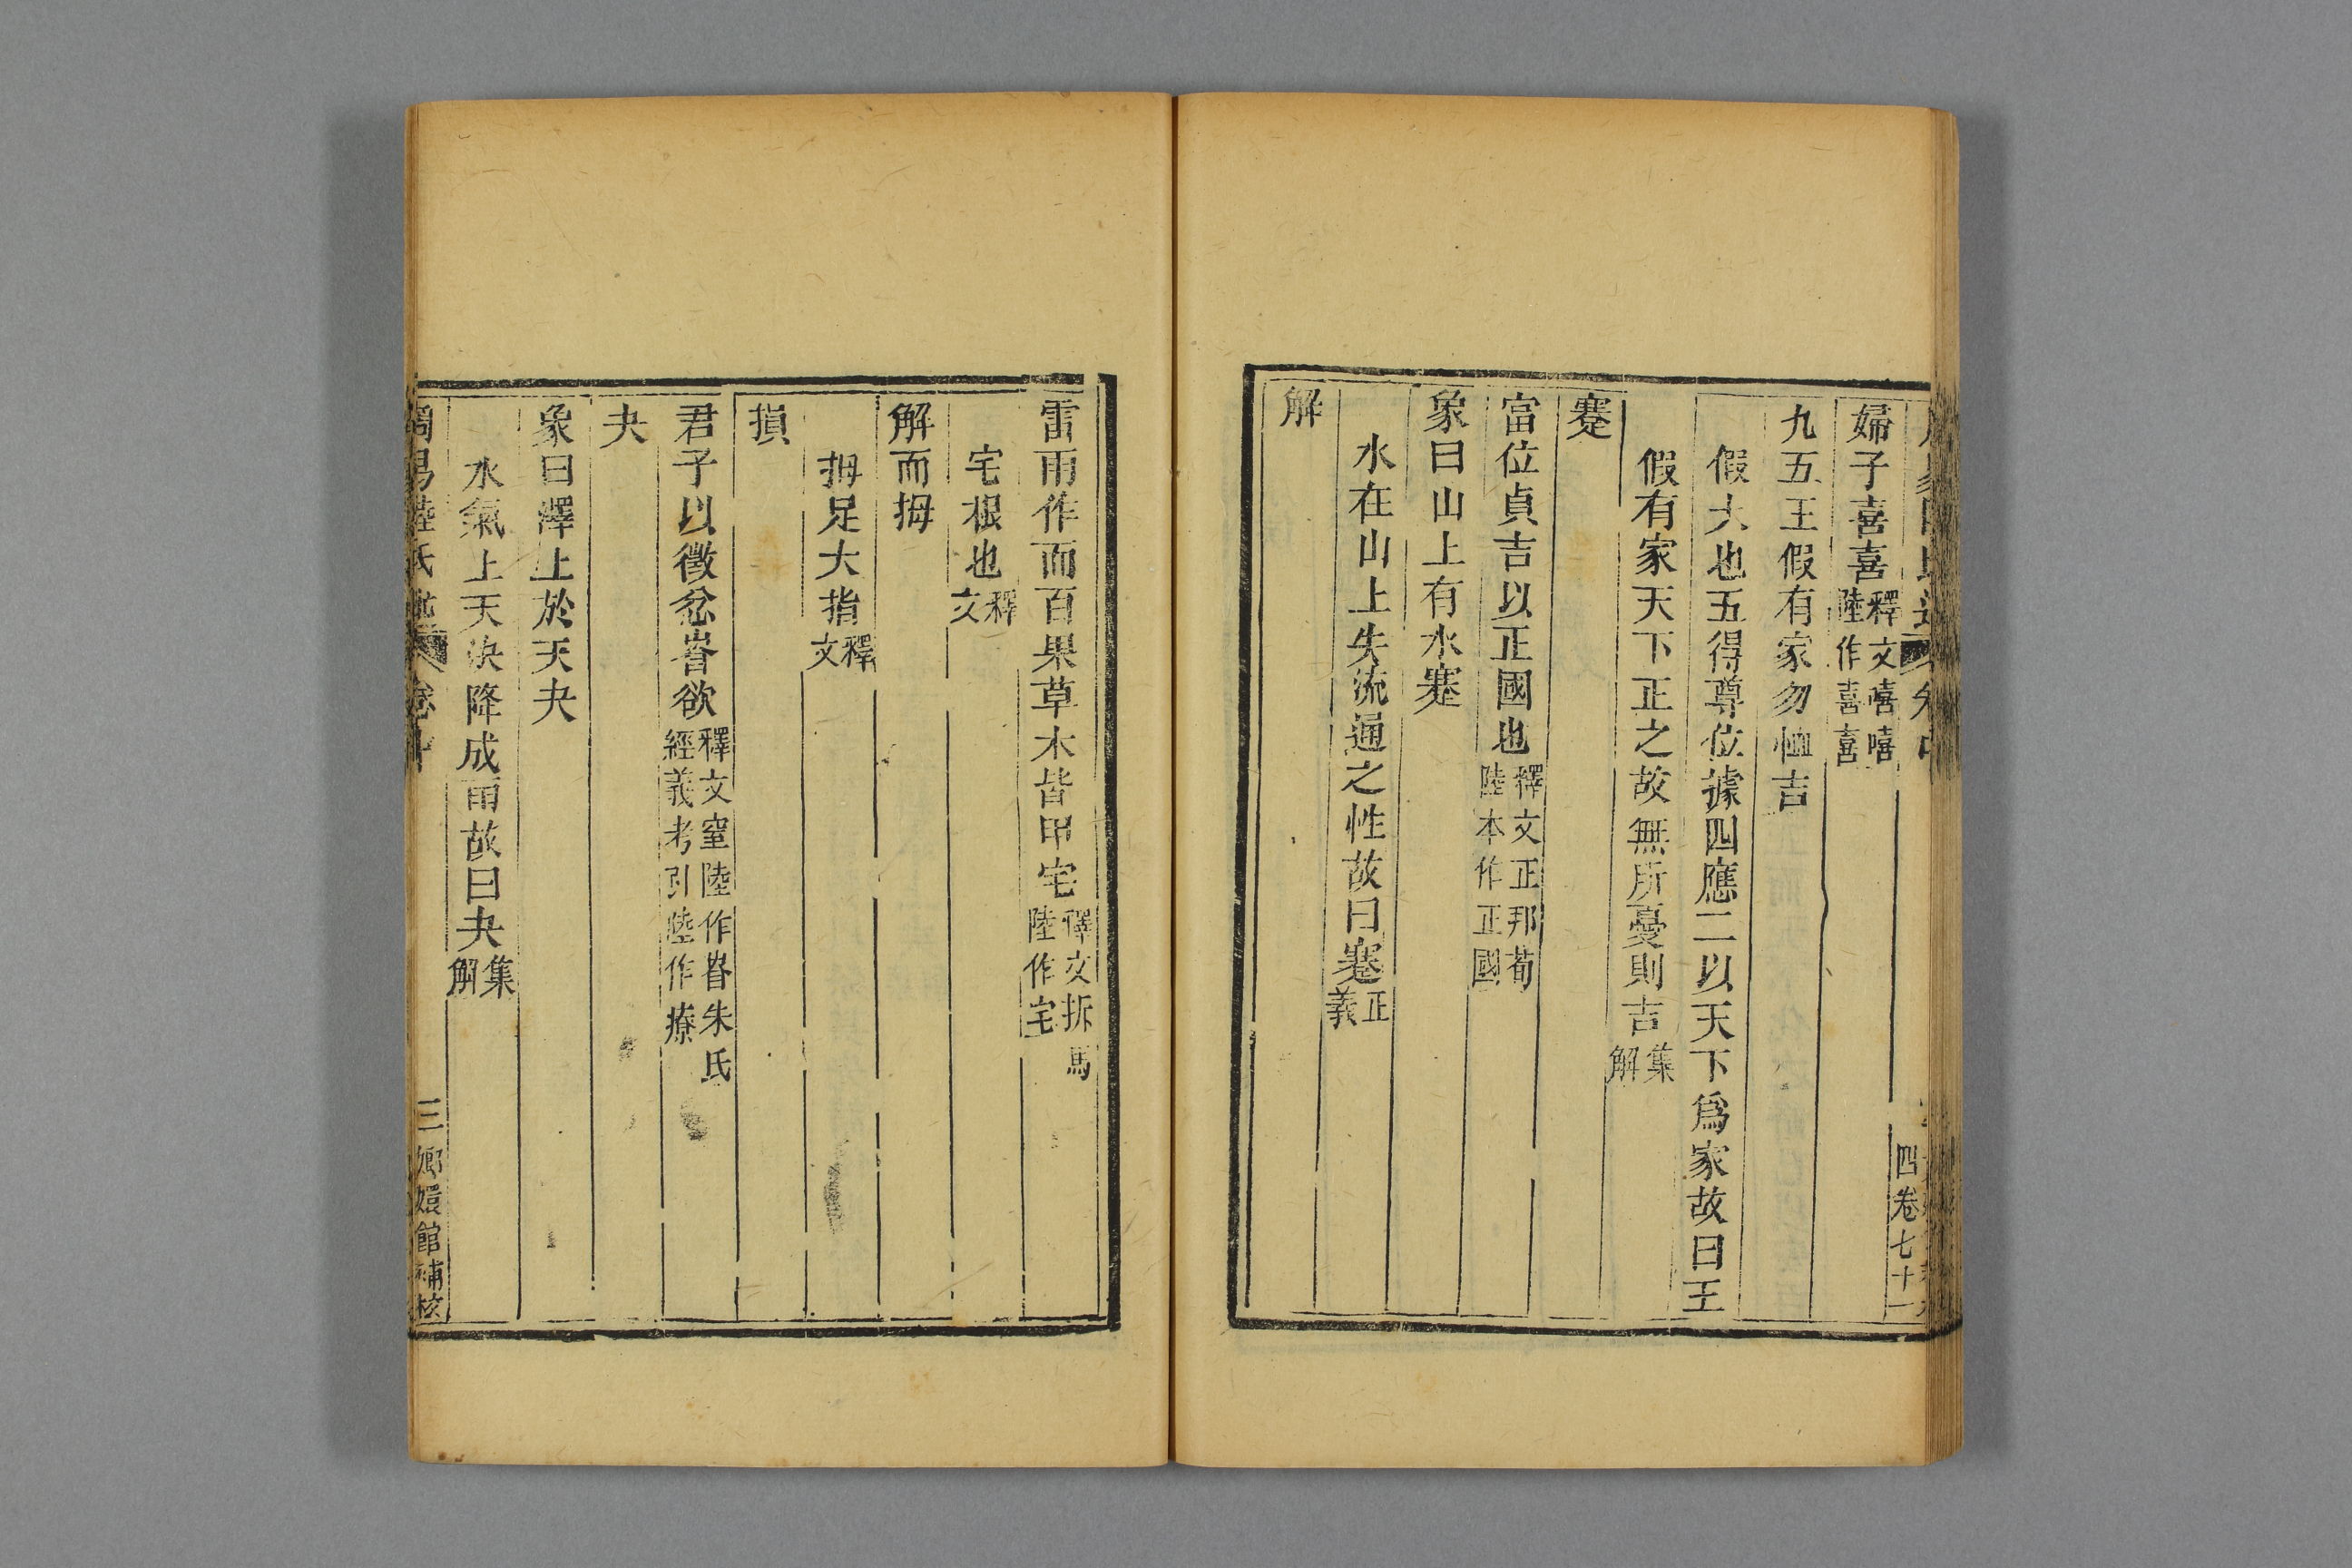 四卷七十一
婦子喜喜釋文嘻嘻陸作喜喜
九五王假有家勿恤吉
假大也五得尊位據四應二以天下爲家故曰王
假有家天下正之故無所憂則吉集解
蹇
當位貞吉以正國也釋文正邦荀陸本作正國
象曰山上有水蹇
水在山上失流通之性故曰蹇正義
解
雷雨作而百果草木皆甲宅釋文坼馬陸作宅
宅根也釋文
解而拇
拇足大指釋文
損
君子以徵忿㫯欲釋文窒陸作㫯朱氏經義考引陸作㾕
夬
象曰澤上於天夬
水氣上天決降成雨故曰夬集解
周易陸氏 卷十 三 嫏嬛館補校